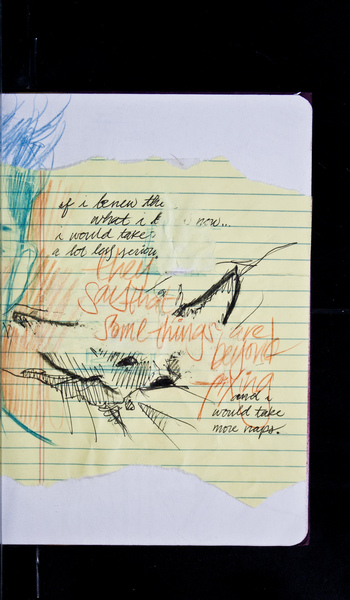 if i knew the
what i k now...
i would take
a lot less
they
say that
some things are
beyond
fixing
and i
would take
more naps.